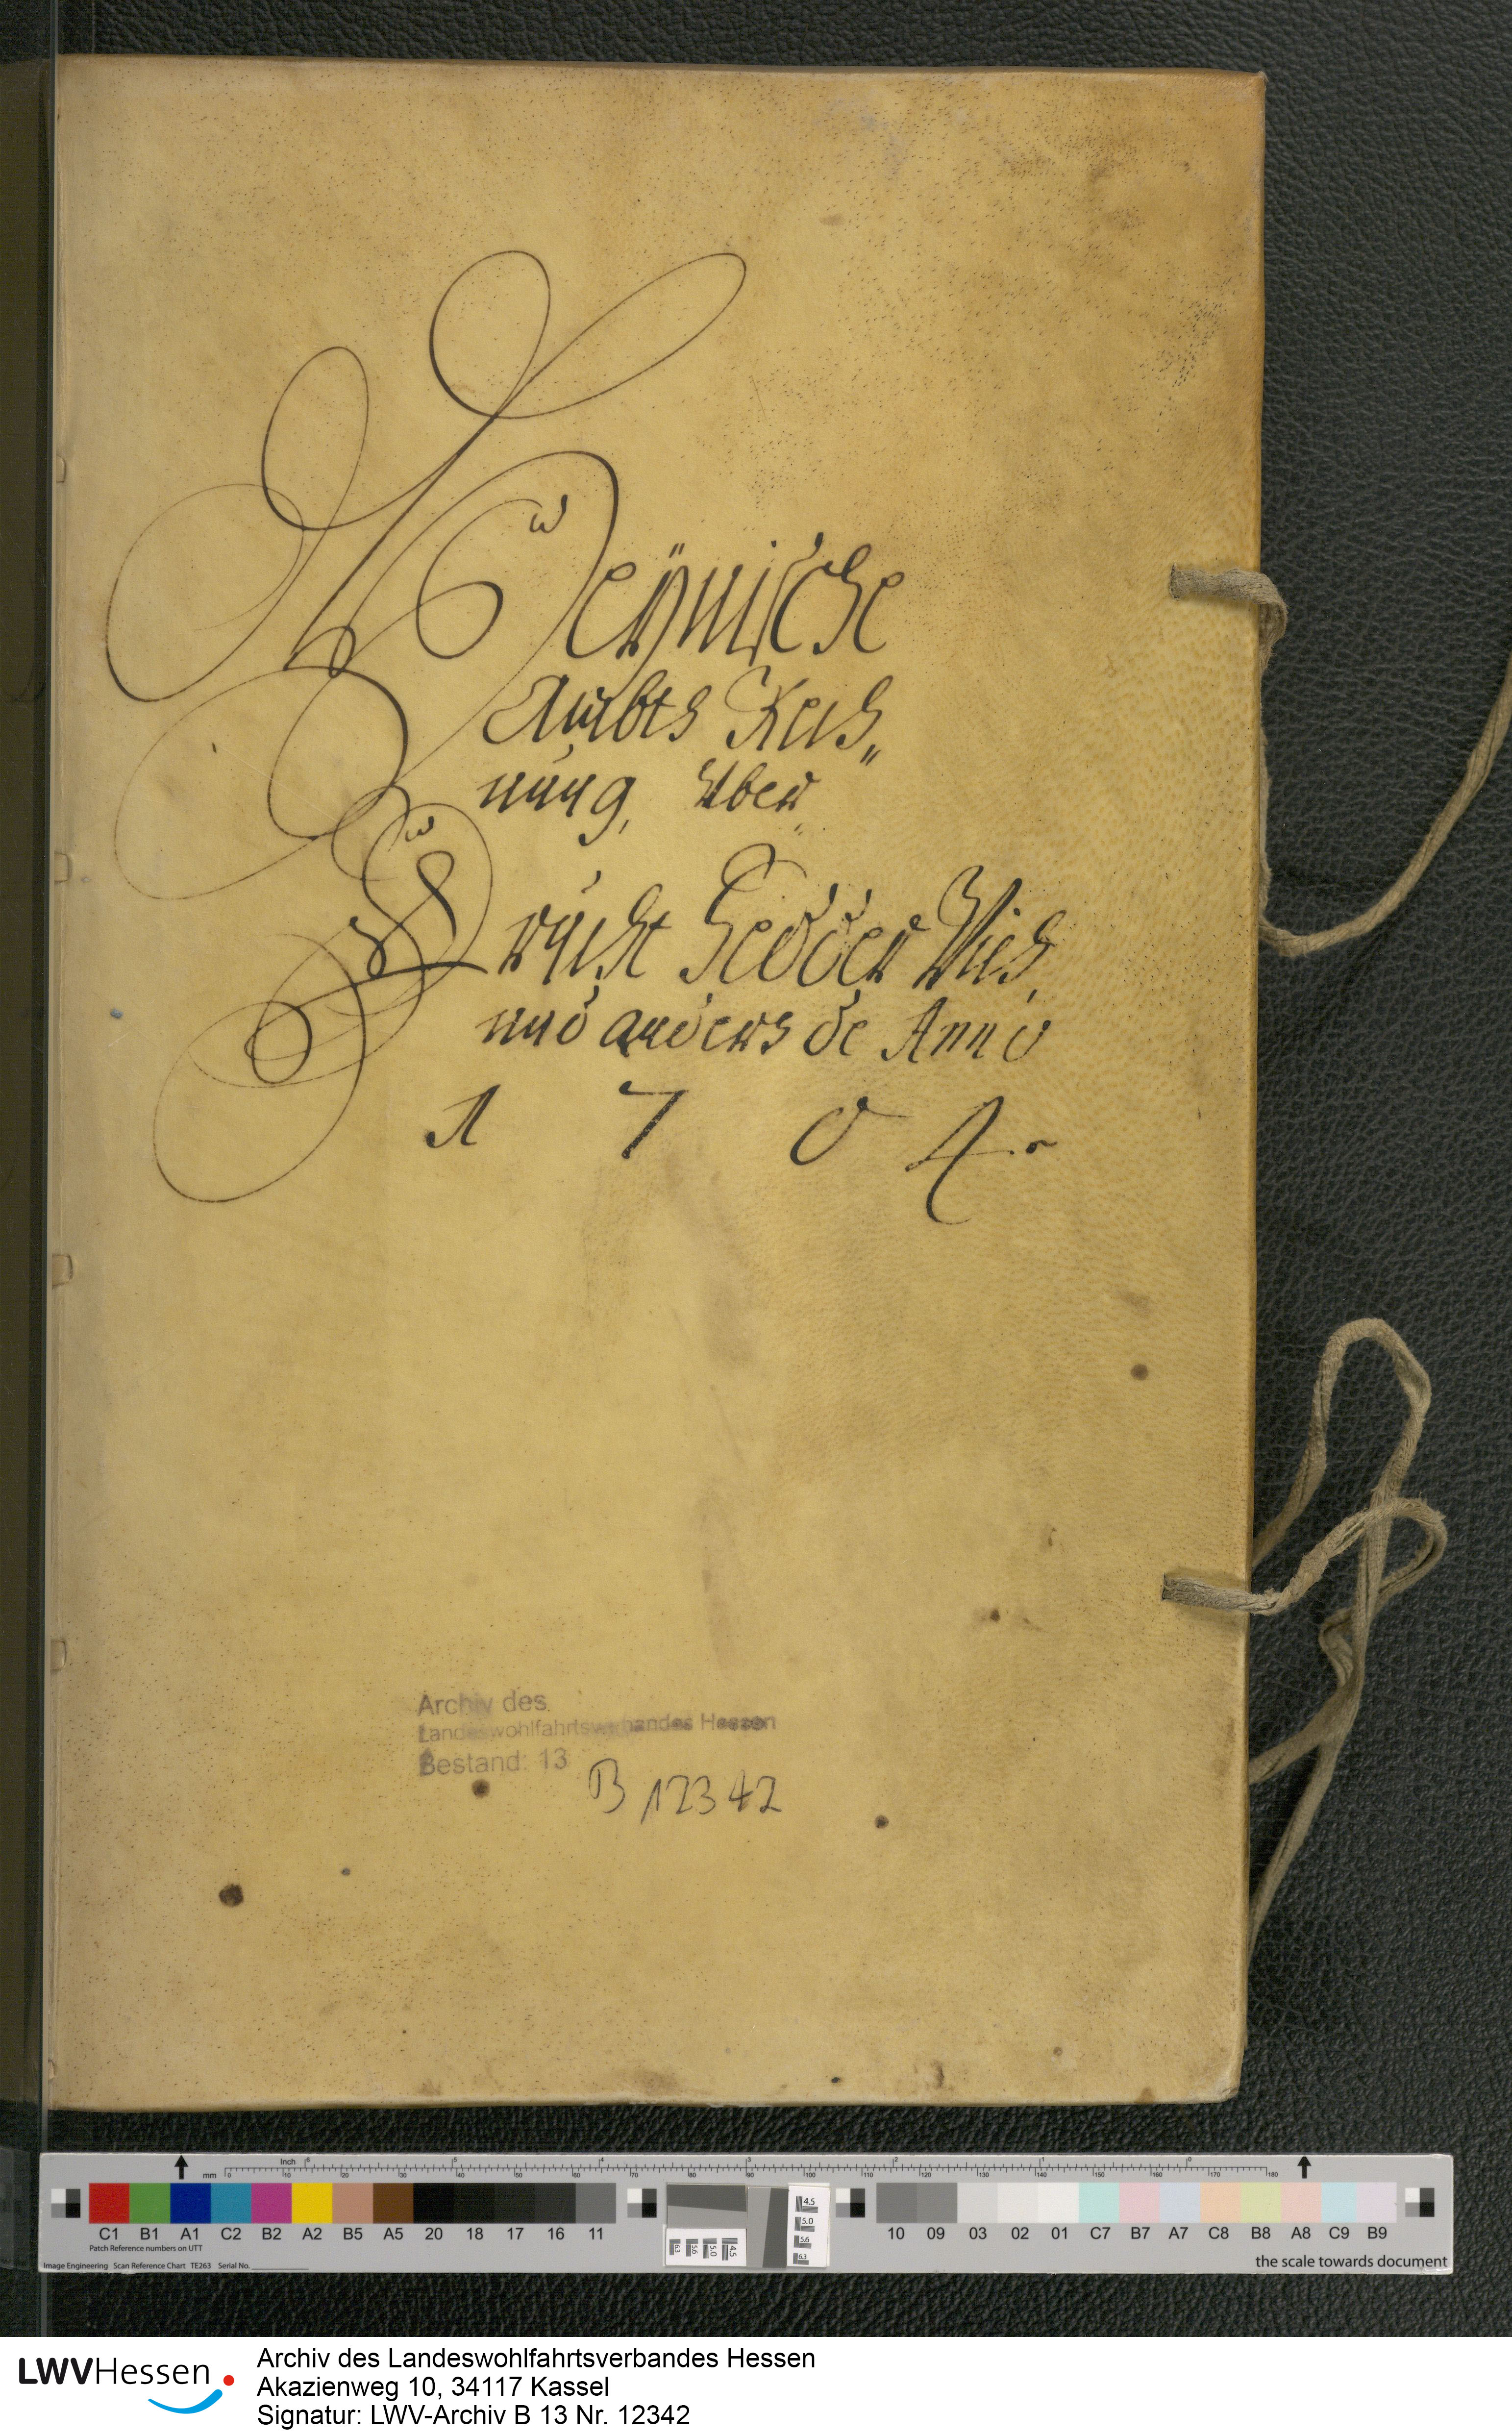 Heÿnische
Ambts Rech„
nung, über
Frücht Fedder Vieh,
und anders de Anno
1 7 0 4.
Archiv des
Landeswohlfahrtsverbandes Hessen
Bestand: 13
B 12342
Inch
mm 0 10 20 30 40 50 60 70 80 90 100 110 120 130 140 150 160 170 180
C1 B1 A1 C2 B2 A2 B5 A5 20 18 17 16 11 10 09 03 02 01 C7 B7 A7 C8 B8 A8 C9 B9
Patch Reference numbers on UTT
Image Engineering Scan Reference Chart TE263 Serial No.
the scale towards document
LWVHessen
Archiv des Landeswohlfahrtsverbandes Hessen
Akazienweg 10, 34117 Kassel
Signatur: LWV-Archiv B 13 Nr. 12342